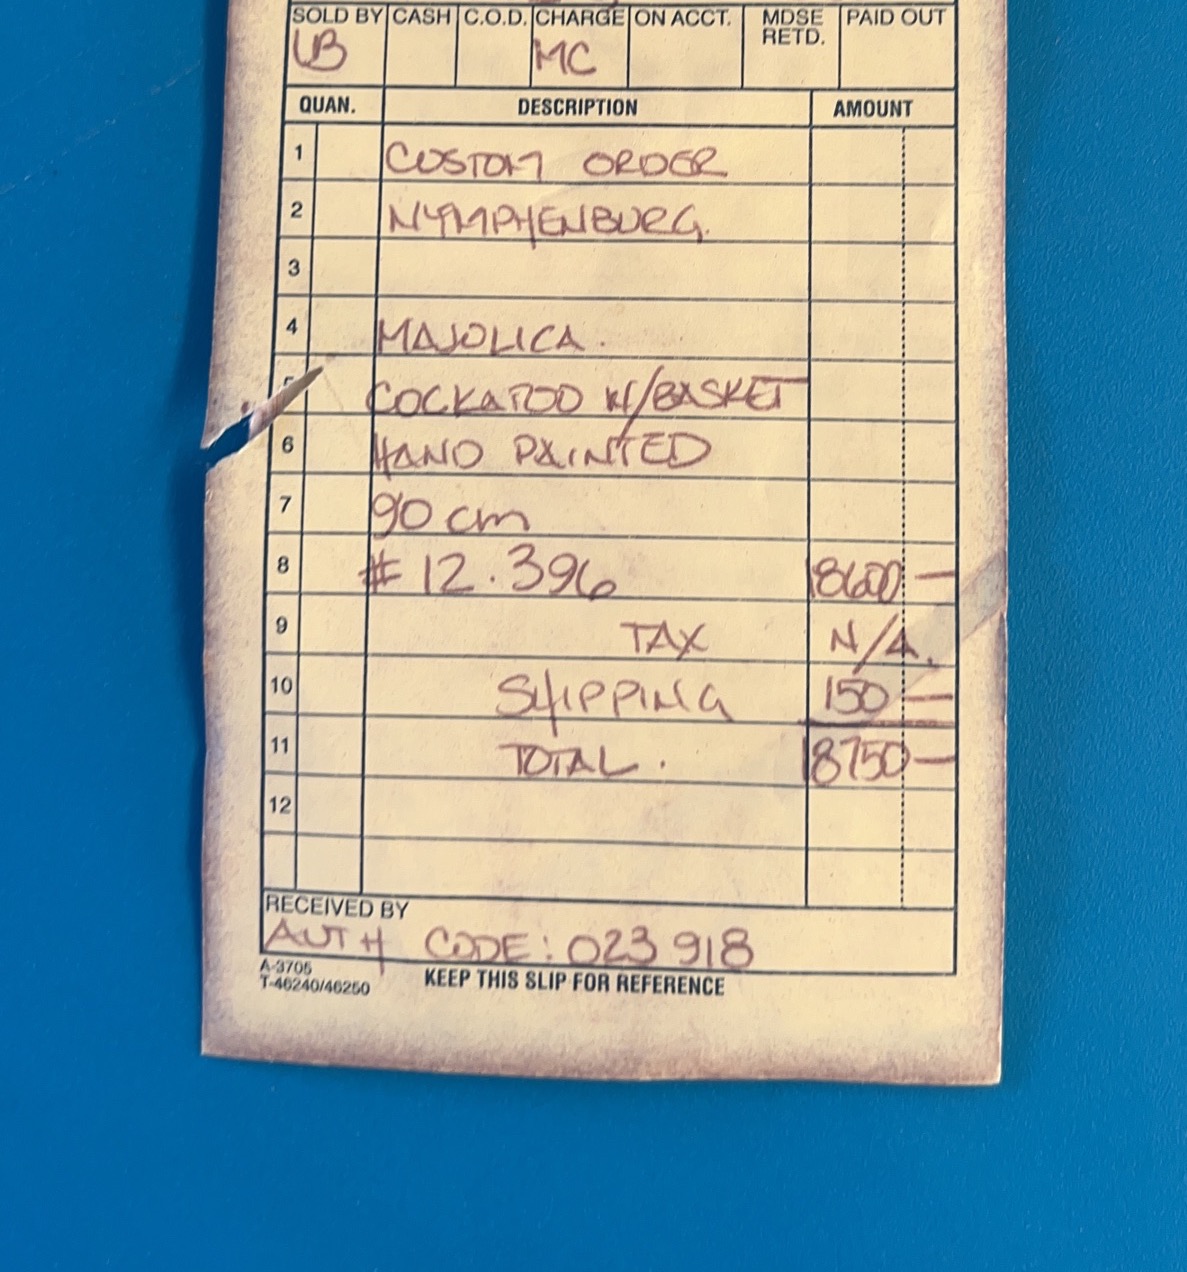 SOLD BY CASH C.O.D. CHARGE ON ACCT. MDSE RETD. PAID OUT
UB MC
QUAN. DESCRIPTION AMOUNT
1 CUSTOM ORDER
2 NYMPHENBURG.
3
4 MAJOLICA.
5 COCKATOO W/BASKET
6 HAND PAINTED
7 90 cm
8 # 12.396 18600 —
9 TAX N/A.
10 SHIPPING 150 —
11 TOTAL. 18750 —
12
RECEIVED BY
AUTH CODE: 023918
A-3705
T-46240/46250
KEEP THIS SLIP FOR REFERENCE